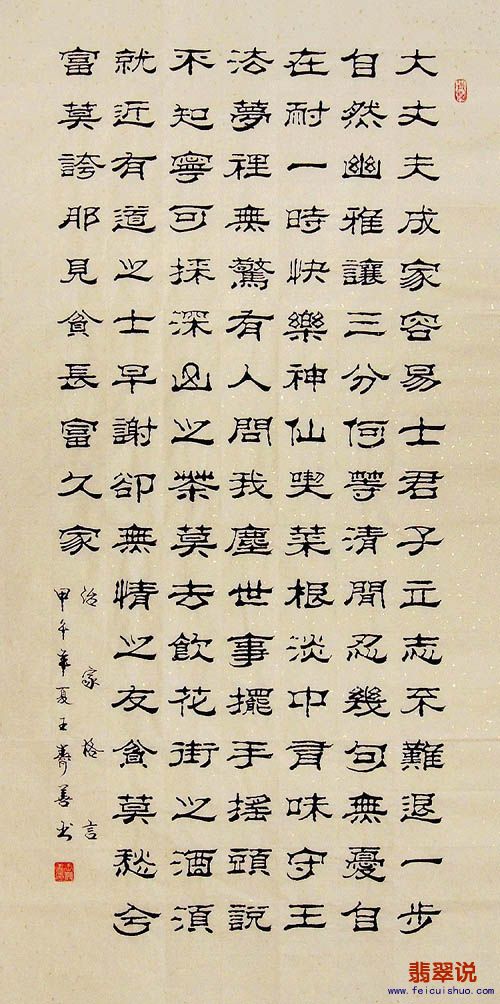 大丈夫成家容易士君子立志不難退一步
自然幽雅讓三分何等清閒忍幾句無憂自
在耐一時快樂神仙喫菜根淡中有味守王
法夢裡無驚有人問我塵世事擺手搖頭說
不知寧可採深山之茶莫去飲花街之酒須
就近有道之士早謝卻無情之友貧莫愁兮
富莫誇那見貧長富久家
治家格言
甲午年夏王壽善书
翡翠说
www.feicuishuo.com